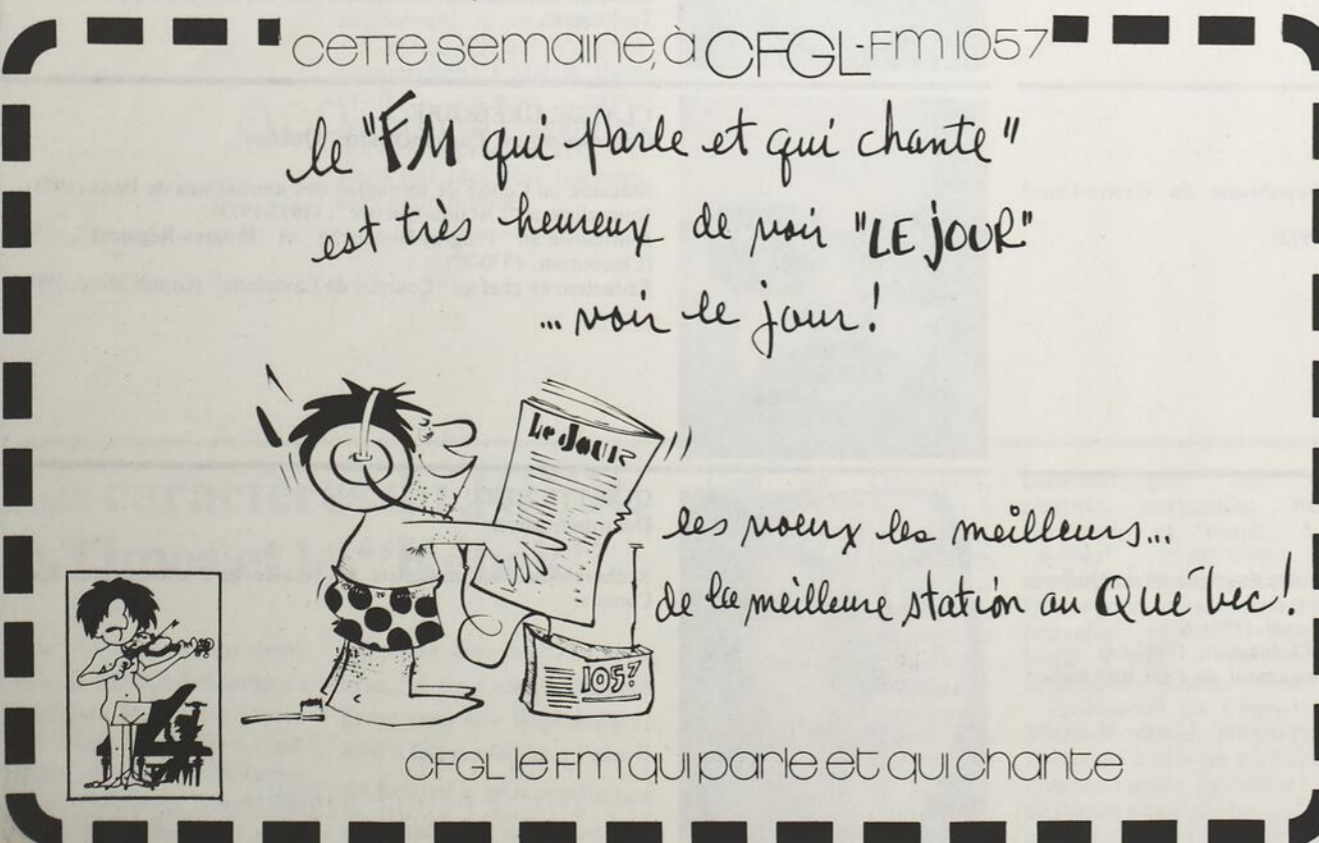 cette semaine, à CFGL-FM 1057
le "FM qui parle et qui chante"
est très heureux de voir "LE JOUR"
... voir le jour!
Le Jour
les voeux les meilleurs...
de la meilleure station au Québec!
1057
CFGL le FM qui parle et qui chante